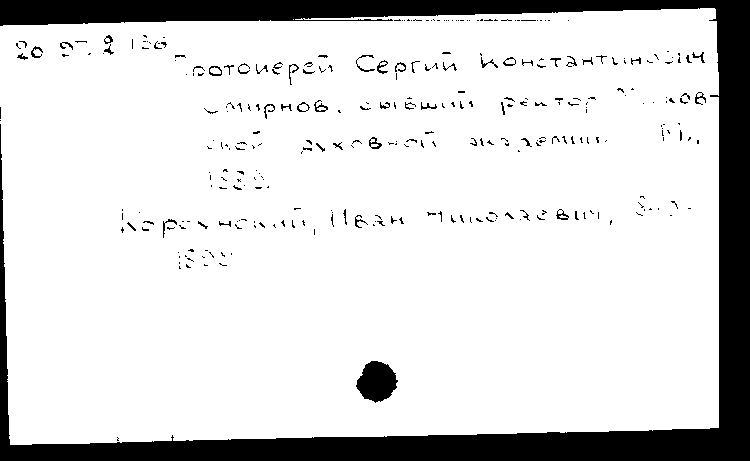 20 97.2 136
Протоиерей Сергий Константинович
Смирнов, бывший ректор Москов-
ской духовной академии. М.,
1889.
Корсунский, Иван Николаевич,